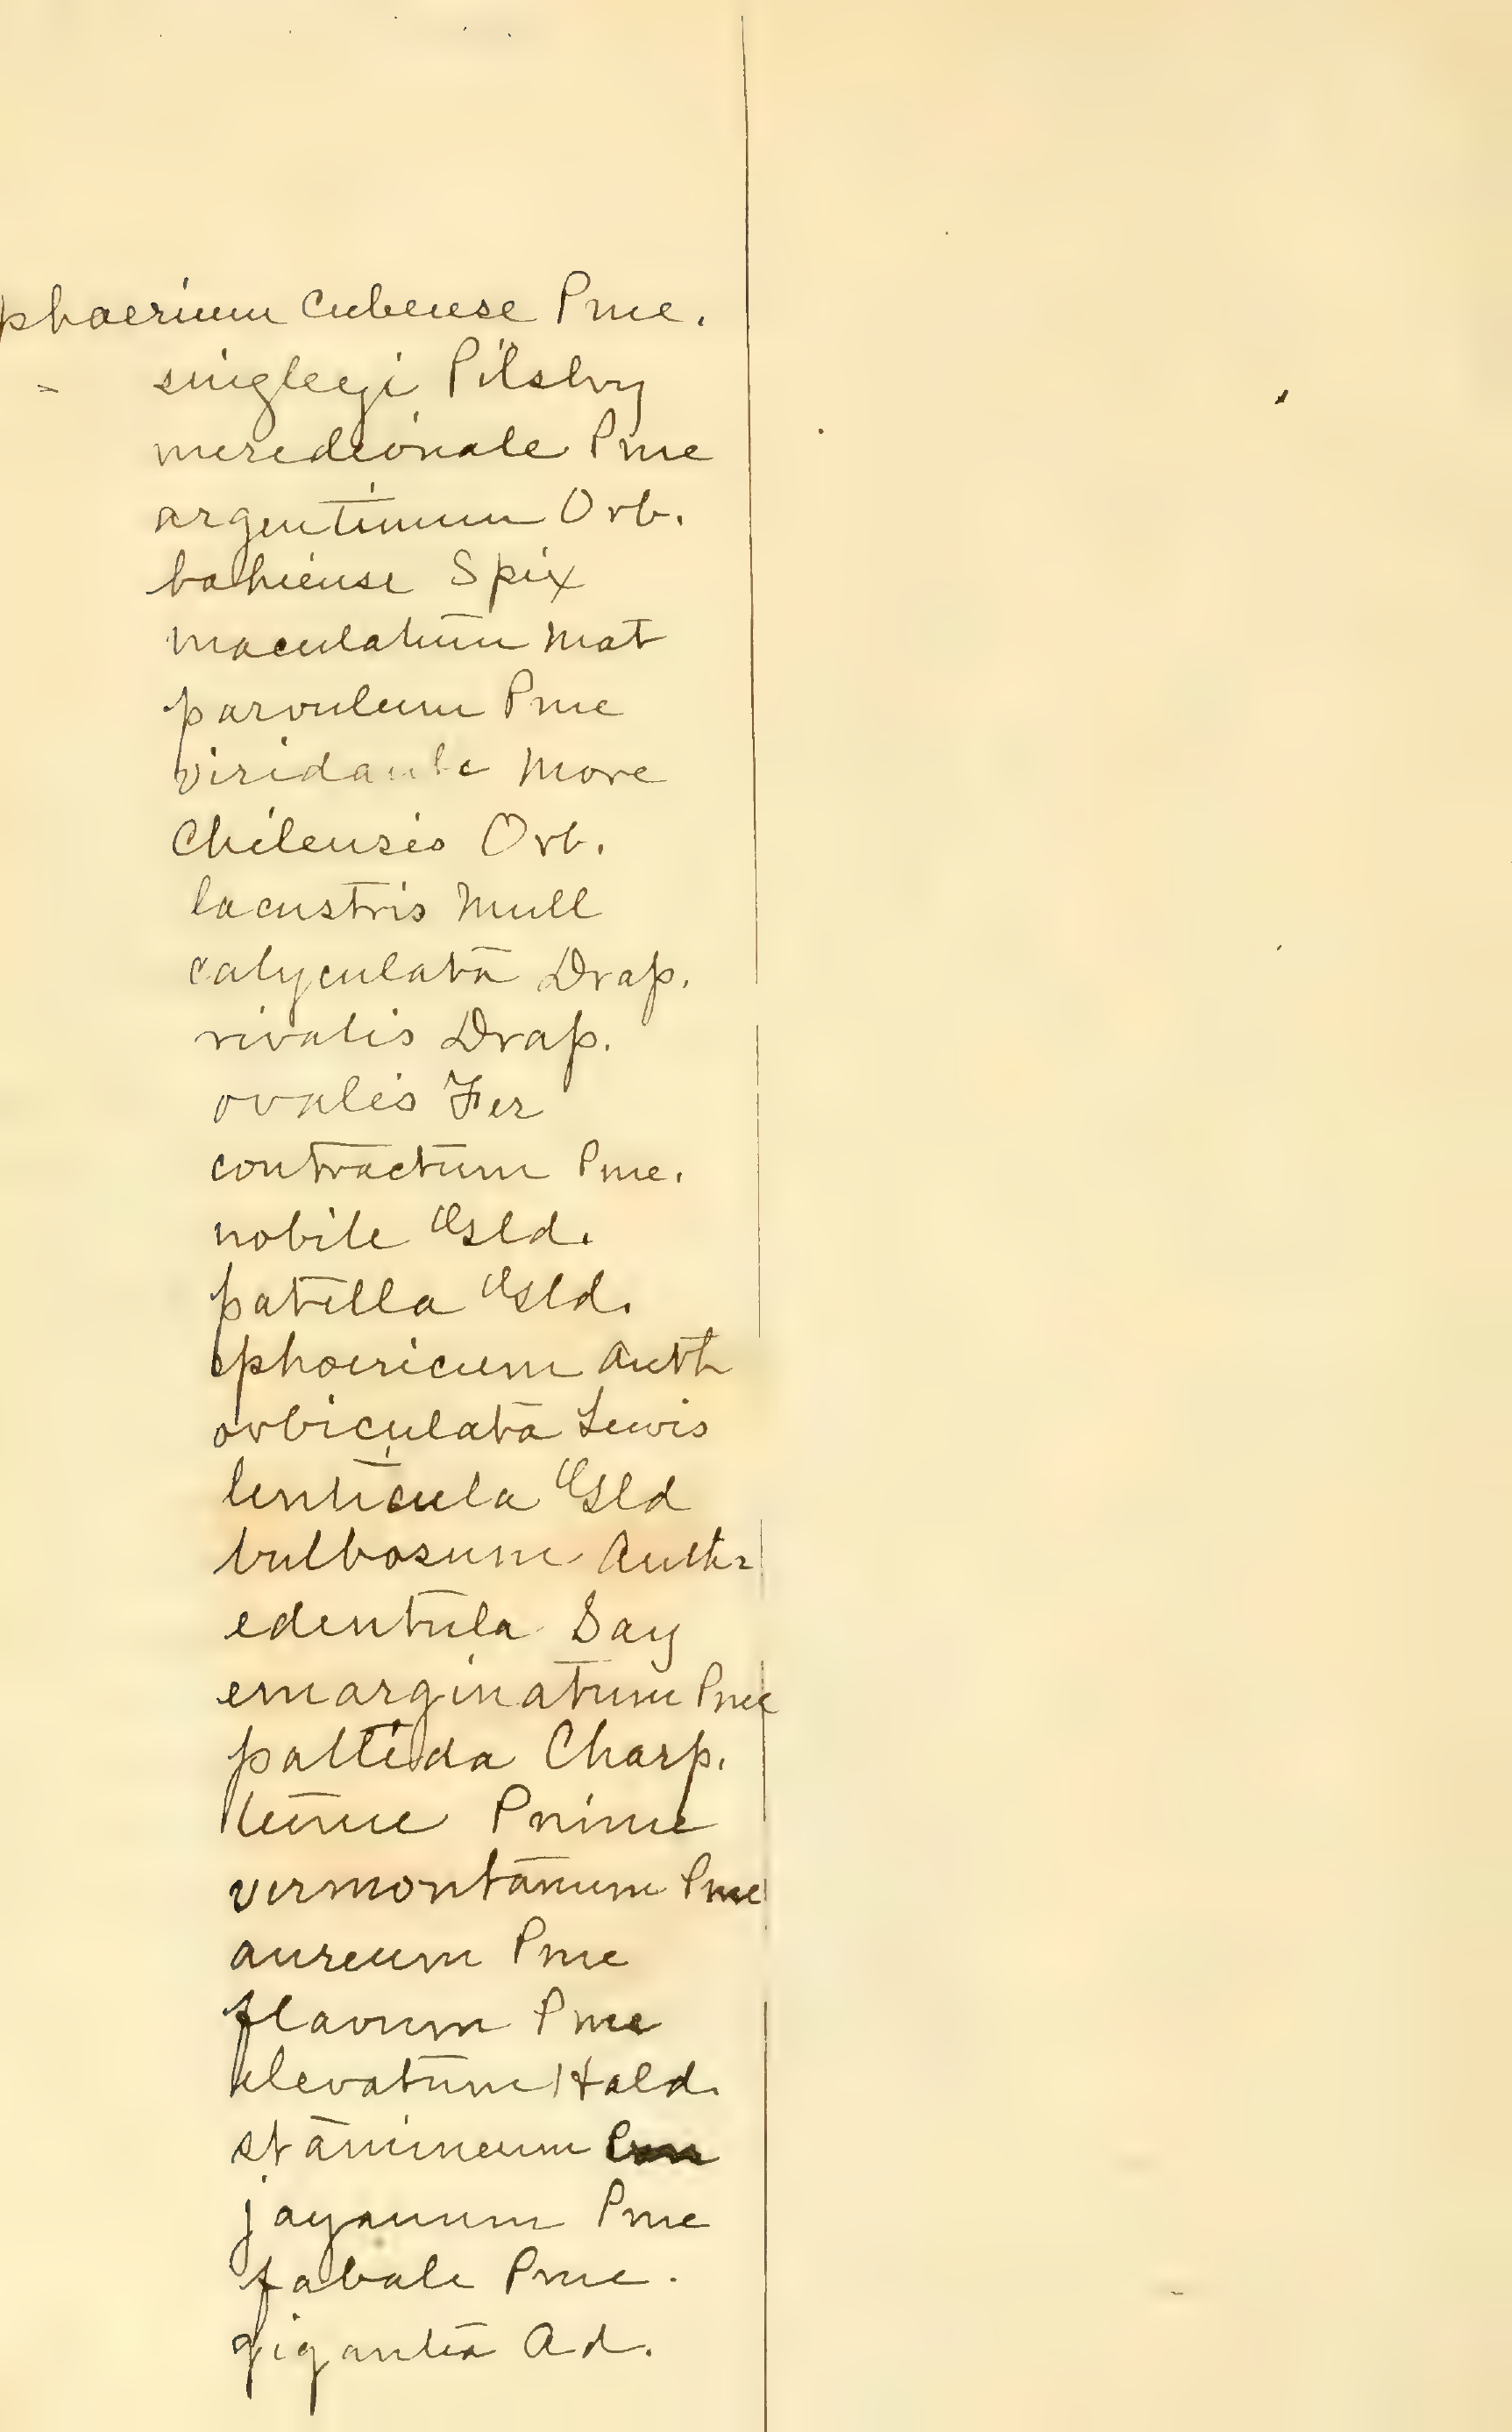 phaerium Cubense Pme.
= singleyi Pilsbry
meredionale Pme
argentinum Orb.
bahiense Spix
maculatum Mat
parvulum Pme
viridante More
Chilensis Orb.
lacustris Mull
calyculata Drap.
rivalis Drap.
ovalis Fer
contractum Pme.
nobile Gld.
patella Gld.
sphaericum Anth
orbiculata Lewis
lenticula Gld
bulbosum Anth.
edentula Say
emarginatum Pme
pallida Charp.
tenue Prime
vermontanum Pme
aureum Pme
flavum Pme
elevatum Hald.
stamineum
jayanum Pme
fabale Pme.
gigantea Ad.